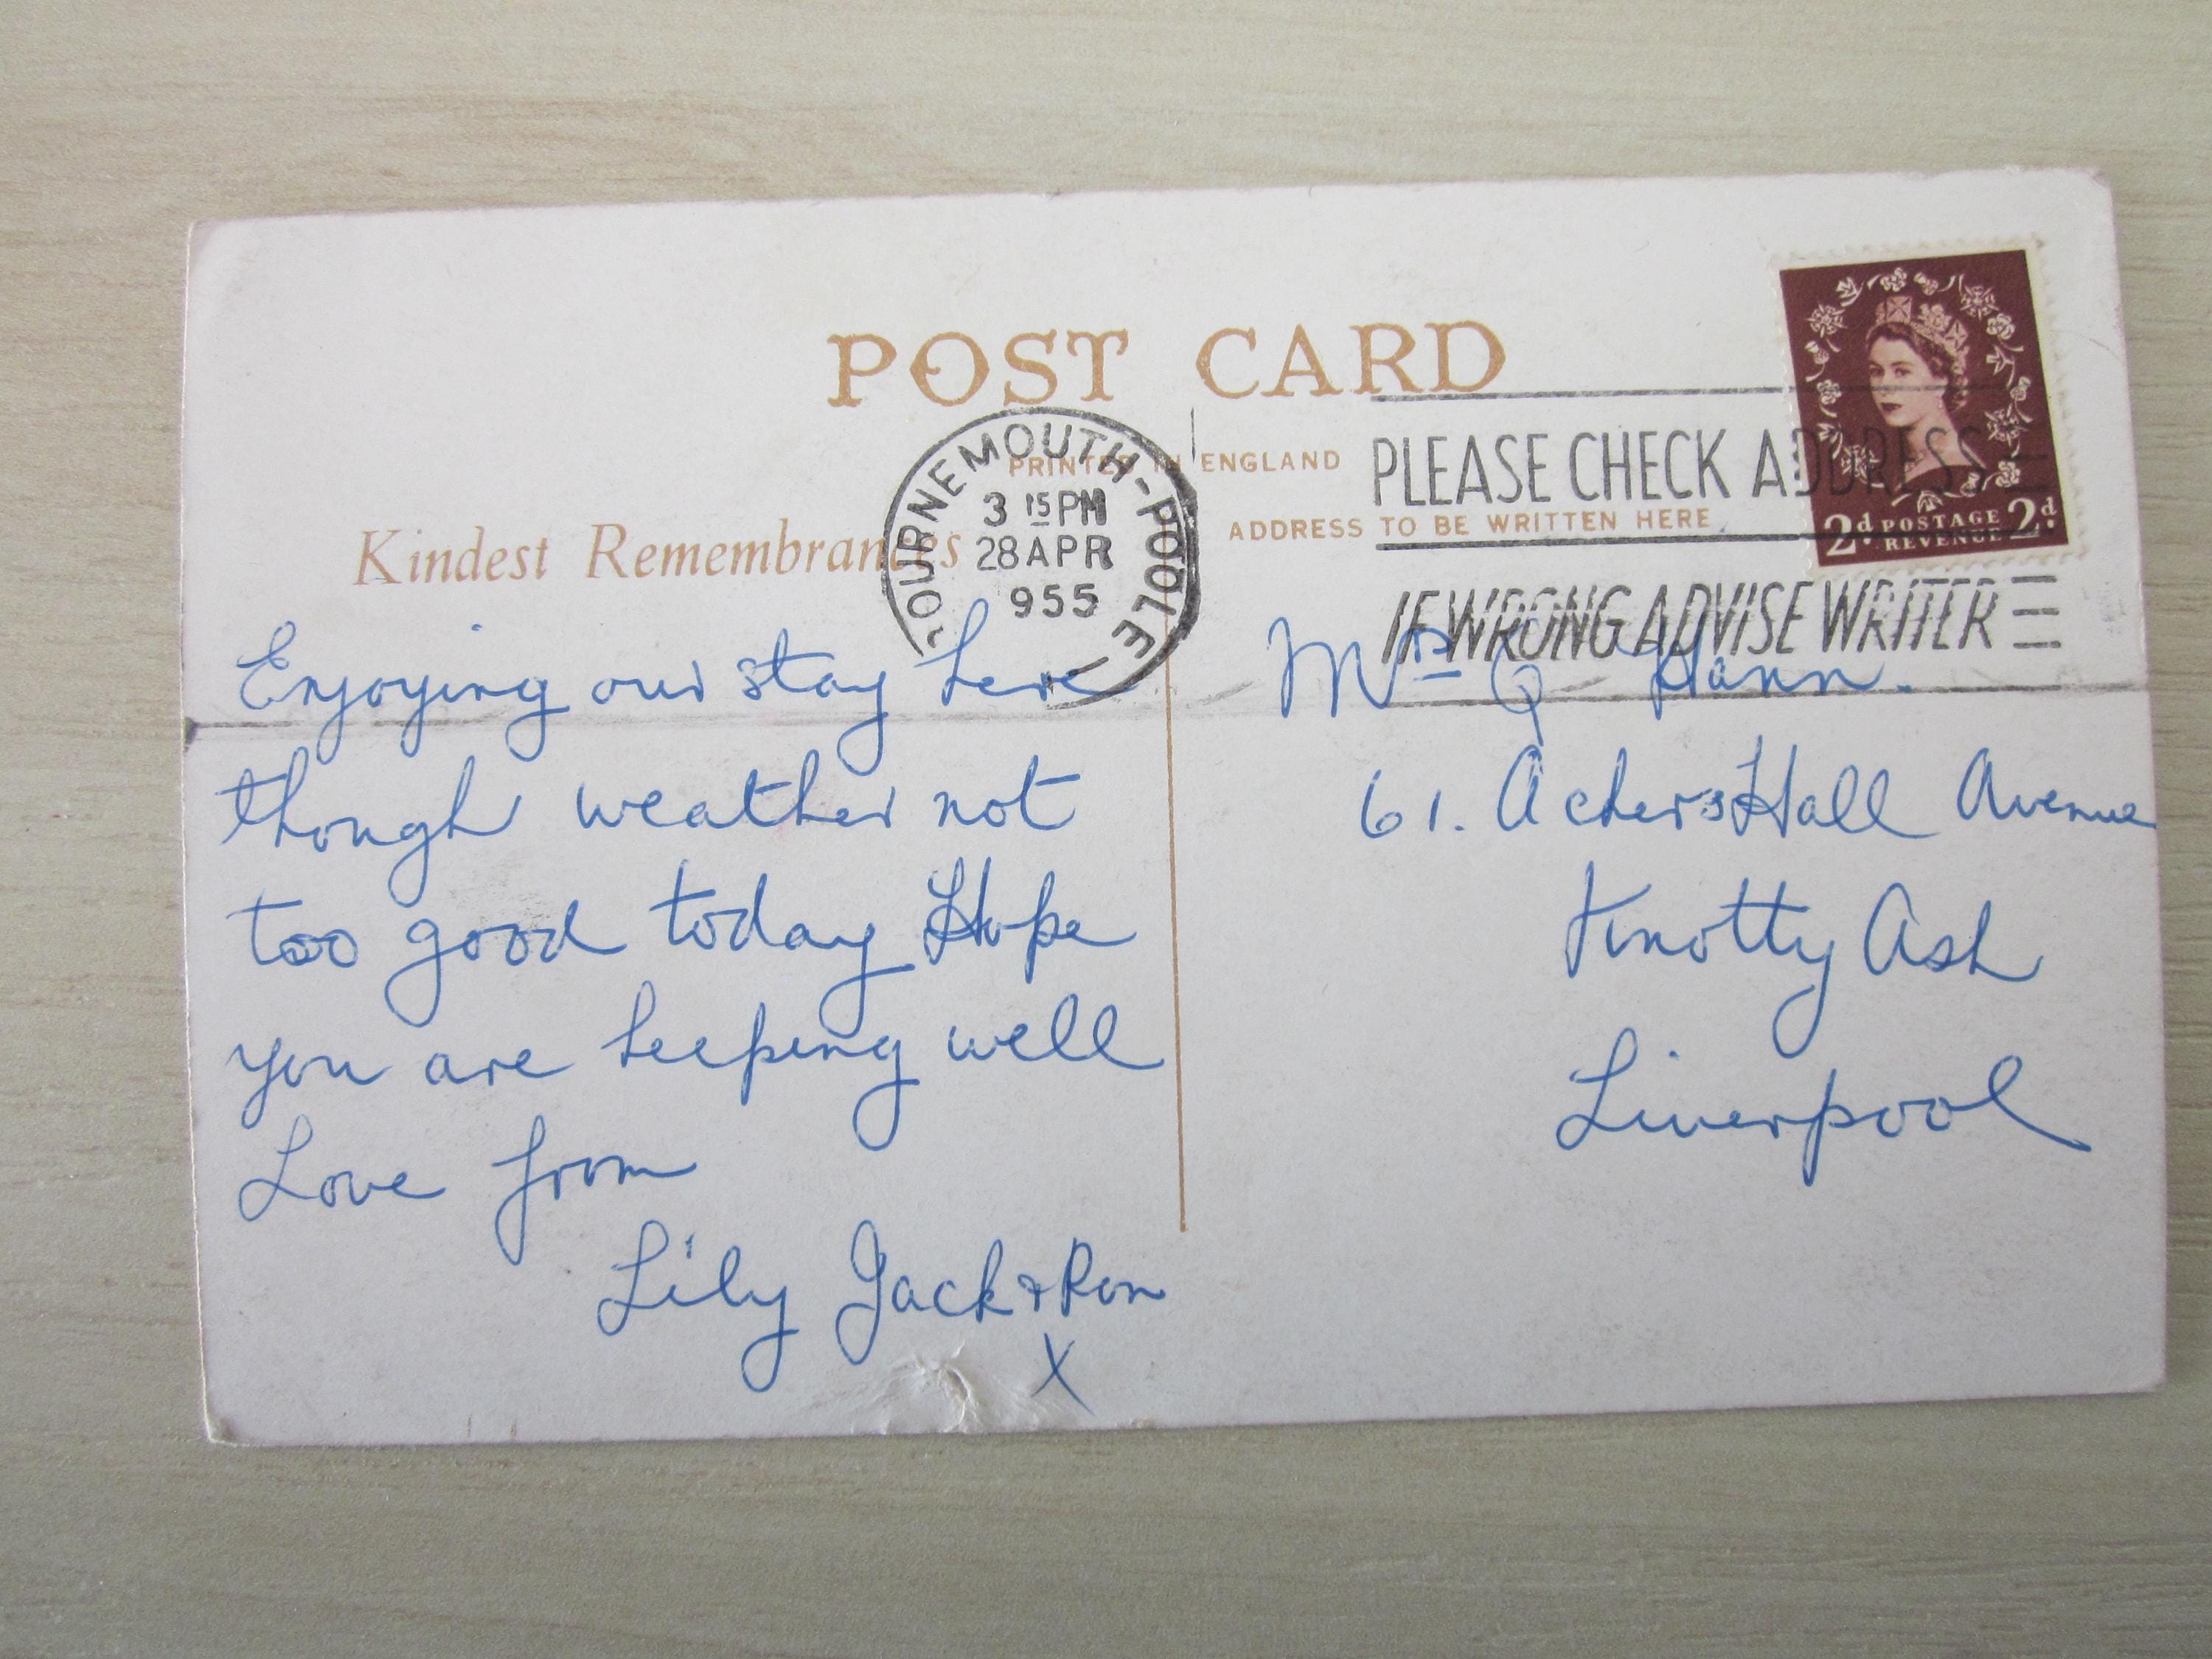 POST CARD
PRINTED IN ENGLAND
Kindest Remembrances
BOURNEMOUTH-POOLE
3 15 PM
28 APR
955
Enjoying our stay here
though weather not
too good today Hope
you are keeping well
Love from
Lily Jack & Ron
X
PLEASE CHECK ADDRESS
ADDRESS TO BE WRITTEN HERE
IF WRONG ADVISE WRITER
2d POSTAGE REVENUE 2d
Mrs Hann.
61. Ackers Hall Avenue
Knotty Ash
Liverpool